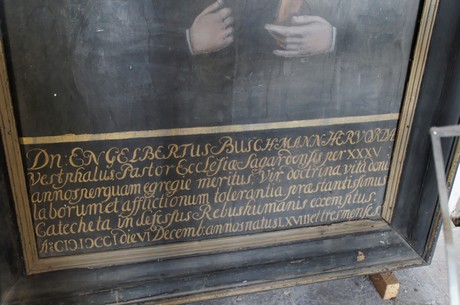 Dn: ENGELBERTUS BUSCHMANN HERVORDA
Vestphalus Pastor Ecclesiæ Sagardensis por XXXV
annos perquam egregie meritus. Vir doctrina vitæ doni
laborum et afflictionum tolerantia præstantissimus
Catecheta indefessus Rebus humanis exemptus.
Aº CIƆIƆCCI die VI Decemb: annos natus LXVIII et tres menses